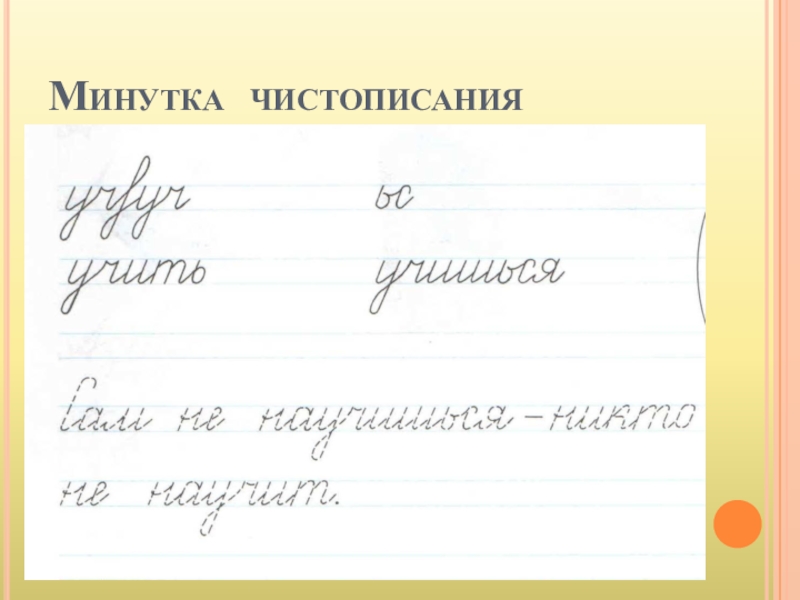 Минутка чистописания
учуч ьс
учить учишься
Сам не научишься – никто
не научит.